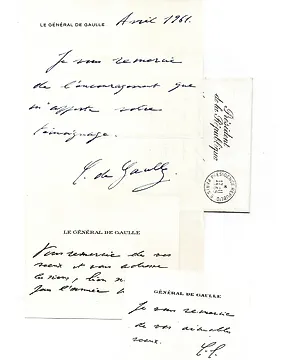 LE GÉNÉRAL DE GAULLE
Avril 1961.
Je vous remercie
de l'encouragement que
m'apporte votre
témoignage.
C. de Gaulle.
Président
de la République
LE GÉNÉRAL DE GAULLE
Vous remercie de vos
vœux et vous adresse
les siens, bien
pour l'année
GÉNÉRAL DE GAULLE
Je vous remercie
de vos aimables
vœux.